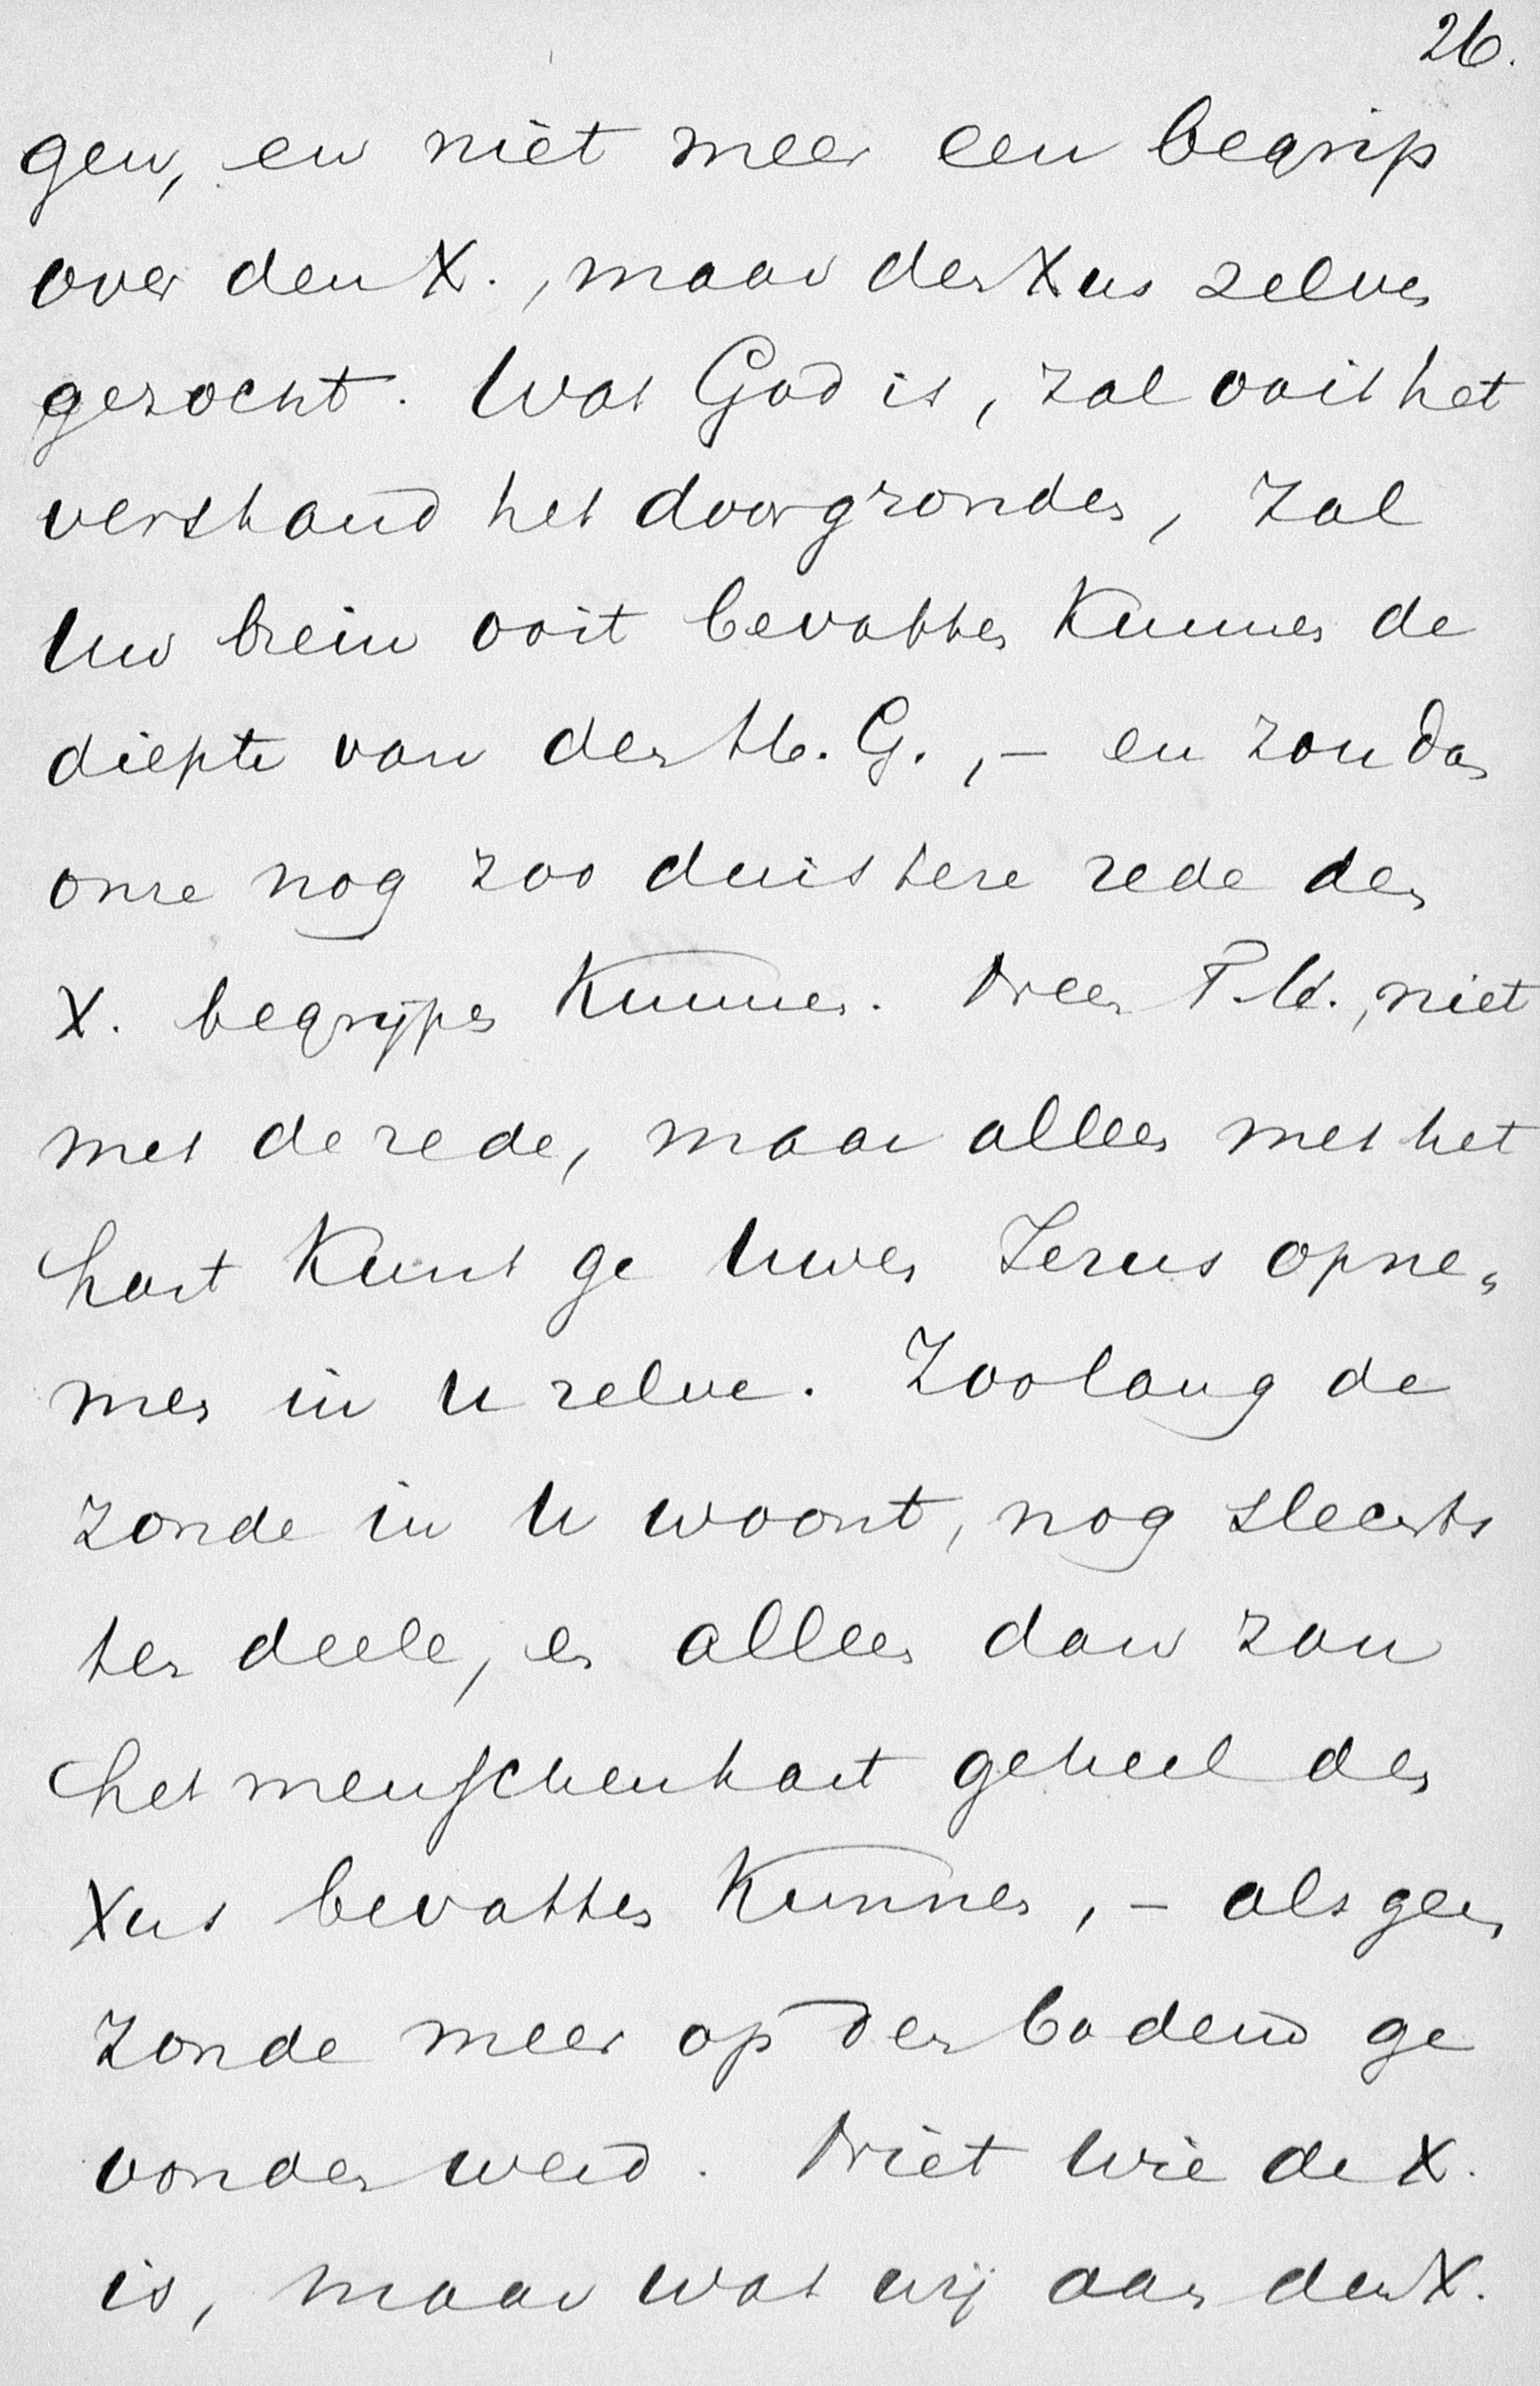 26.
gen, en niet meer een begrip
over den X., maar den Xus zelven
gezocht. Wat God is, zal ooit het
verstand het doorgronden, zal
Uw brein ooit bevatten kunnen de
diepte van den H. G., – en zou dan
onze nog zoo duistere rede den
X. begrijpen kunnen. Neen T. H., niet
met de rede, maar alleen met het
hart kunt ge Uwen Jezus opne„
men in U zelve. Zoolang de
zonde in U woont, nog slechts
ten deele, en alleen dan zou
het menschenhart geheel den
Xus bevatten kunnen, – als geen
zonde meer op den bodem ge
vonden werd. Niet wie de X.
is, maar wat wij aan den X.